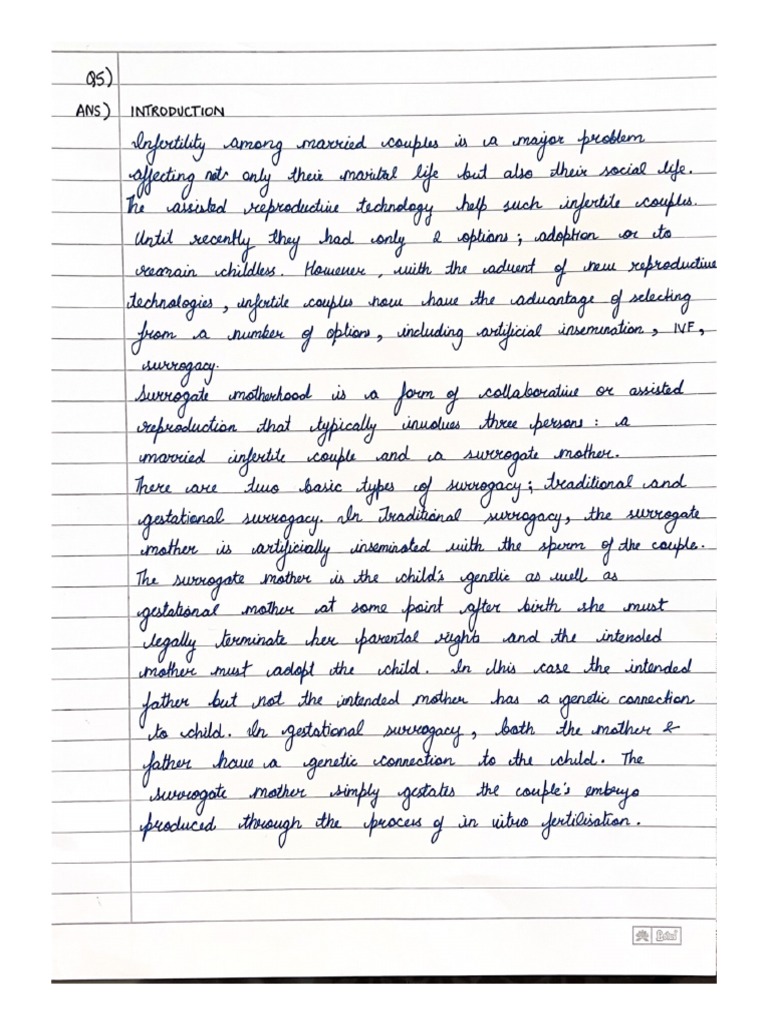 Q5)
ANS) INTRODUCTION
Infertility among married couples is a major problem
affecting not only their marital life but also their social life.
The assisted reproductive technology help such infertile couples.
Until recently they had only 2 options; adoption or to
remain childless. However, with the advent of new reproductive
technologies, infertile couples now have the advantage of selecting
from a number of options, including artificial insemination, IVF,
surrogacy.
Surrogate motherhood is a form of collaborative or assisted
reproduction that typically involves three persons: a
married infertile couple and a surrogate mother.
There are two basic types of surrogacy; traditional and
gestational surrogacy. In Traditional surrogacy, the surrogate
mother is artificially inseminated with the sperm of the couple.
The surrogate mother is the child's genetic as well as
gestational mother at some point after birth she must
legally terminate her parental rights and the intended
mother must adopt the child. In this case the intended
father but not the intended mother has a genetic connection
to child. In gestational surrogacy, both the mother &
father have a genetic connection to the child. The
surrogate mother simply gestates the couple's embryo
produced through the process of in vitro fertilisation.